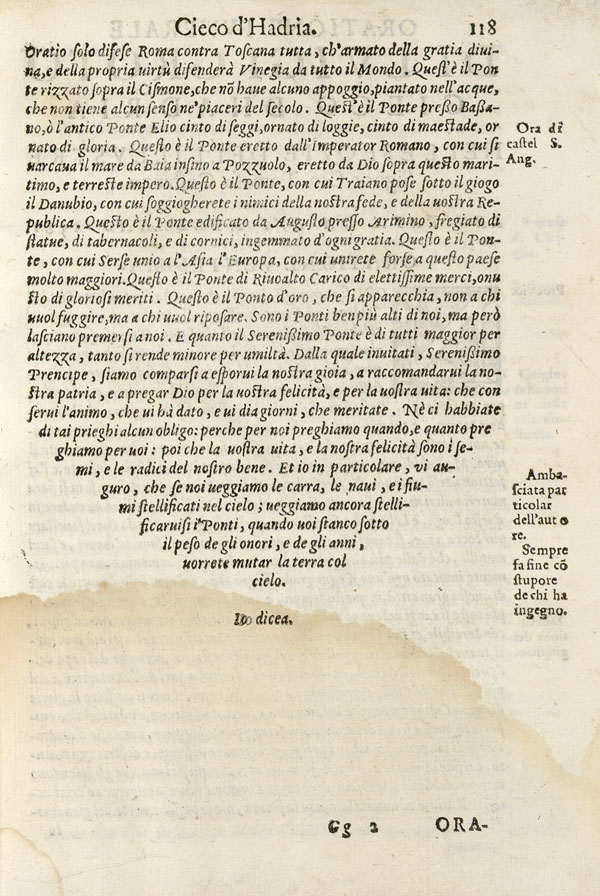 Cieco d'Hadria. 118
Oratio solo difese Roma contra Toscana tutta, ch'armato della gratia diui-
na, e della propria uirtù difenderà Vinegia da tutto il Mondo. Quest'è il Pon
te rizzato sopra il Cismone, che nõ haue alcuno appoggio, piantato nell'acque,
che non tiene alcun senso ne' piaceri del secolo. Quest'è il Ponte presso Bassa-
no, ò l'antico Ponte Elio cinto di seggi, ornato di loggie, cinto di maestade, or
nato di gloria. Questo è il Ponte eretto dall'Imperator Romano, con cui si
uarcaua il mare da Baia insino a Pozzuolo, eretto da Dio sopra questo mari-
timo, e terrestre impero. Questo è il Ponte, con cui Traiano pose sotto il giogo
il Danubio, con cui soggiogherete i nimici della nostra fede, e della uostra Re-
publica. Questo è il Ponte edificato da Augusto presso Arimino, fregiato di
statue, di tabernacoli, e di cornici, ingemmato d'ogni gratia. Questo è il Pon-
te, con cui Serse unio a l'Asia l'Europa, con cui unirete forse a questo paese
molto maggiori. Questo è il Ponte di Riuoalto Carico di elettissime merci, onu
sto di gloriosi meriti. Questo è il Ponto d'oro, che si apparecchia, non a chi
uuol fuggire, ma a chi uuol riposare. Sono i Ponti ben più alti di noi, ma però
lasciano premersi a noi. E quanto il Serenissimo Ponte è di tutti maggior per
altezza, tanto si rende minore per umiltà. Dalla quale inuitati, Serenissimo
Prencipe, siamo comparsi a esporui la nostra gioia, a raccomandarui la no-
stra patria, e a pregar Dio per la uostra felicità, e per la uostra uita: che con
serui l'animo, che ui hà dato, e ui dia giorni, che meritate. Nè ci habbiate
di tai prieghi alcun obligo: perche per noi preghiamo quando, e quanto pre
ghiamo per uoi: poi che la uostra uita, e la nostra felicità sono i se-
mi, e le radici del nostro bene. Et io in particolare, vi au-
guro, che se noi ueggiamo le carra, le naui, e i fiu-
mi stellificati nel cielo; ueggiamo ancora stelli-
ficaruisi i Ponti, quando uoi stanco sotto
il peso de gli onori, e de gli anni,
uorrete mutar la terra col
cielo.
Io dicea.
Ora di
castel S.
Ang.
Amba-
sciata par
ticolar
dell'auto
re.
Sempre
fa fine cõ
stupore
de chi ha
ingegno.
Gg 2 ORA-